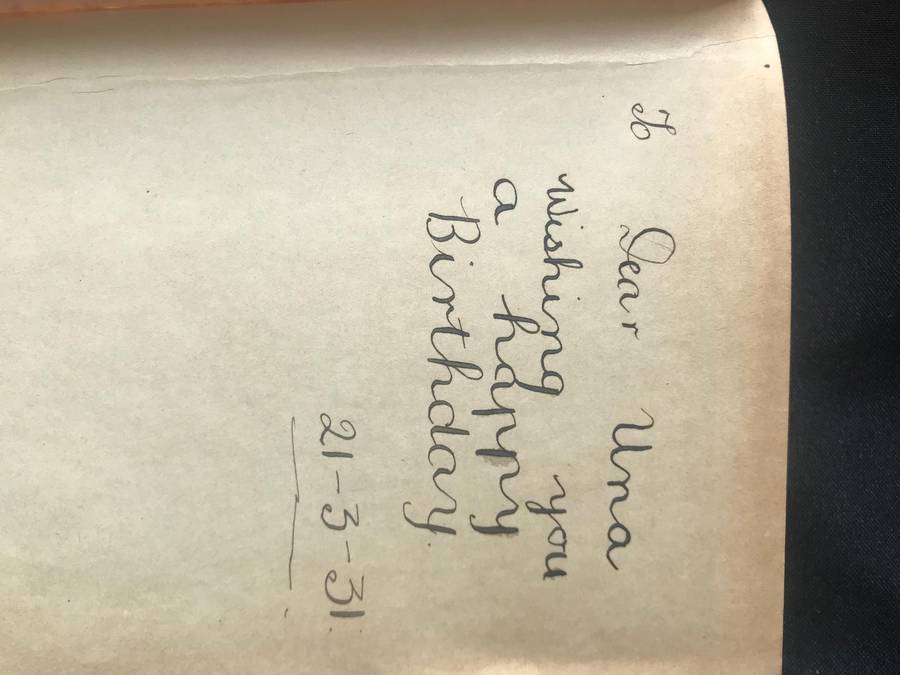 To Dear Una
wishing you
a happy
Birthday.
21-3-31.